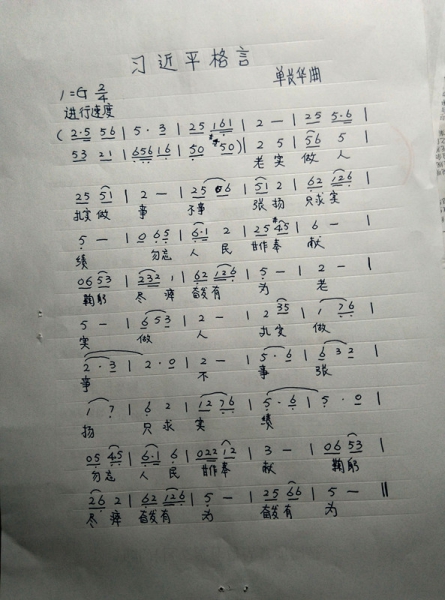 习近平格言
单长华曲
1=G 2/4
进行速度
(2·5 56 | 5·3 | 25 161 | 2 — | 25 5·6 |
53 21 | 656 16 | 50 50) | 25 | 56 5 |
老实 做 人
25 51 | 2 — | 25 06 | 51 2 | 62 126 |
扎实做 事 不事 张扬 只求实
5 — | 0 65 | 6·1 2 | 25 45 | 6 — |
绩 勿忘 人民 甘作奉 献
06 53 | 232 1 | 62 126 | 5 — | 2 — |
鞠躬 尽瘁 奋发有 为 老
5 — | 653 | 2 — | 2 35 | 1 76 |
实 做 人 扎实 做
2·3 | 2·0 | 2 — | 5·6 | 632 |
事 不 事 张
1 7 | 6 2 | 12 76 | 5·6 | 5·0 |
扬 只求 实 绩
05 45 | 6·1 6 | 022 12 | 3 — | 06 53 |
勿忘 人民 甘作奉 献 鞠躬
26 2 | 62 126 | 5 — | 25 66 | 5 — ‖
尽瘁 奋发有 为 奋发有 为